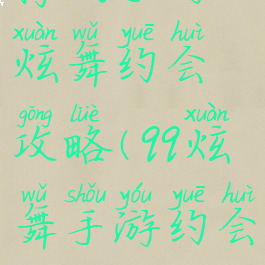 xuàn wǔ yuē huì
炫舞约会
gōng lüè xuàn
攻略(99炫
wǔ shǒu yóu yuē huì
舞手游约会